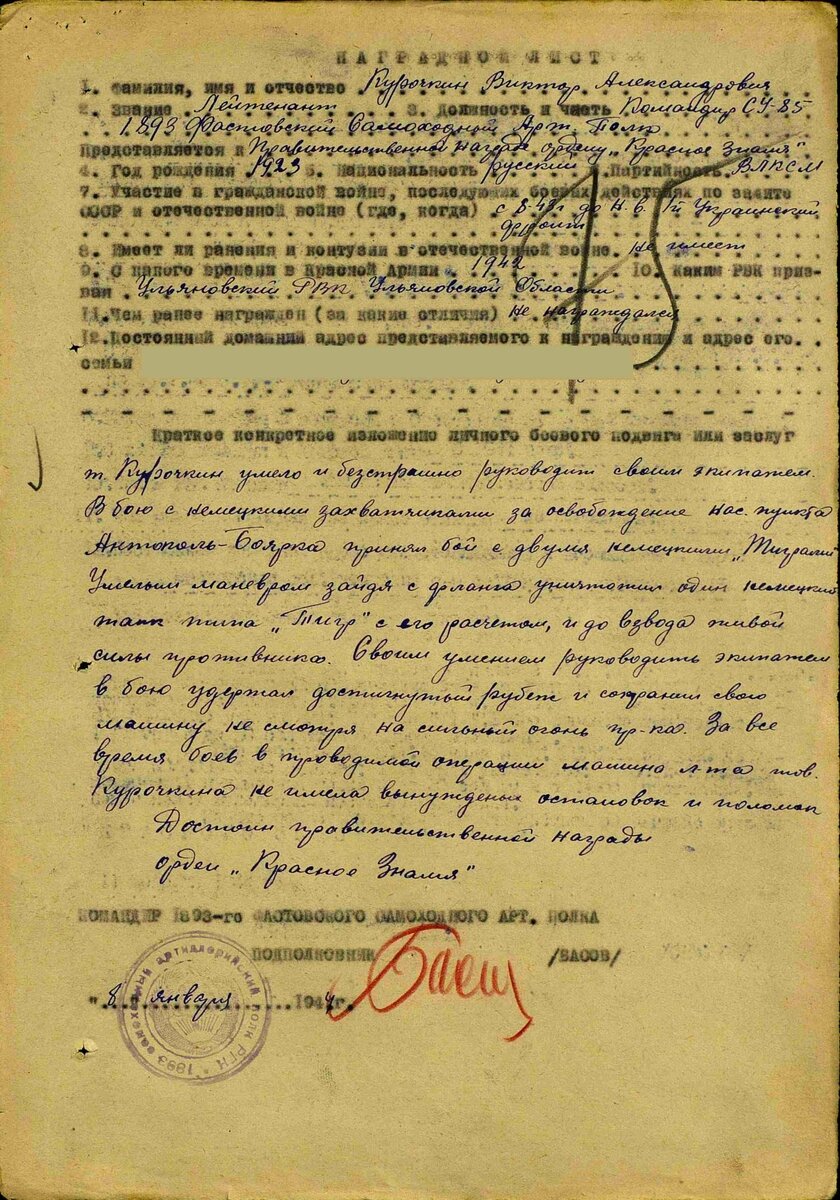 НАГРАДНОЙ ЛИСТ
1. Фамилия, имя и отчество Курочкин Виктор Александрович
2. Звание Лейтенант 3. Должность и часть Командир СУ-85
1893 Фастовский Самоходной Арт. Полк
Представляется к Правительственной награде ордену „Красное Знамя"
4. Год рождения 1923 5. Национальность русский Партийность ВЛКСМ
7. Участие в гражданской войне, последующих боевых действиях по защите
СССР и отечественной войне (где, когда) с 8.43г до н.в. 1й Украинский
фронт
8. Имеет ли ранения и контузии в отечественной войне. не имеет
9. С какого времени в Красной Армии 1942 10. Каким РВК приз-
ван Ульяновский ГВК Ульяновской Области
11. Чем ранее награжден (за какие отличия) не награждался
12. Постоянный домашний адрес представляемого к награждению и адрес его
семьи
15
Краткое конкретное изложение личного боевого подвига или заслуг
т. Курочкин умело и безстрашно руководит своим экипажем.
В бою с немецкими захватчиками за освобождение нас. пункта
Антополь-Боярка принял бой с двумя немецкими „Тиграми"
Умелым маневром зайдя с фланга уничтожил один немецкий
танк типа „Тигр" с его расчетом, и до взвода живой
силы противника. Своим умением руководить экипажем
в бою удержал достигнутый рубеж и сохранил свою
машину не смотря на сильный огонь пр-ка. За все
время боев в проводимой операции машина л-та тов.
Курочкина не имела вынужденых остановок и поломок
Достоин правительственной награды
орден „Красное Знамя"
КОМАНДИР 1893-го ФАСТОВСКОГО САМОХОДНОГО АРТ. ПОЛКА
ПОДПОЛКОВНИК Басов /БАСОВ/
"8 января 1944г.
1893 самоходный артиллерийский полк РГК